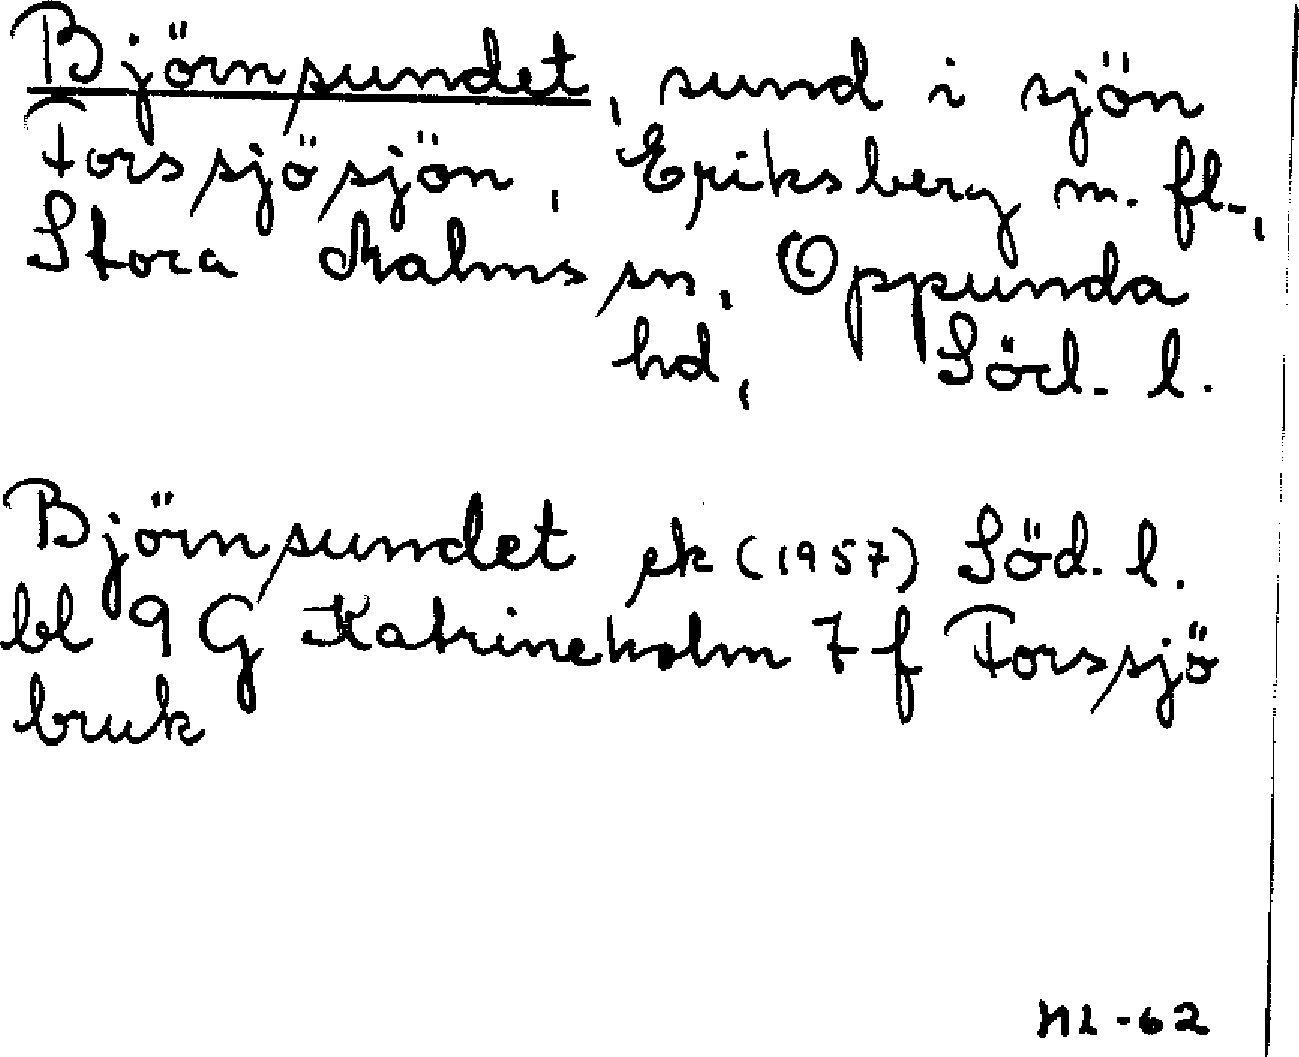 Björnsundet, sund i sjön
Forssjösjön, Eriksberg m. fl.,
Stora Malms sn, Oppunda
hd, Söd. l.
Björnsundet ek (1957) Söd. l.
bl 9 G Katrineholm 7 f Forssjö
bruk
NL-62